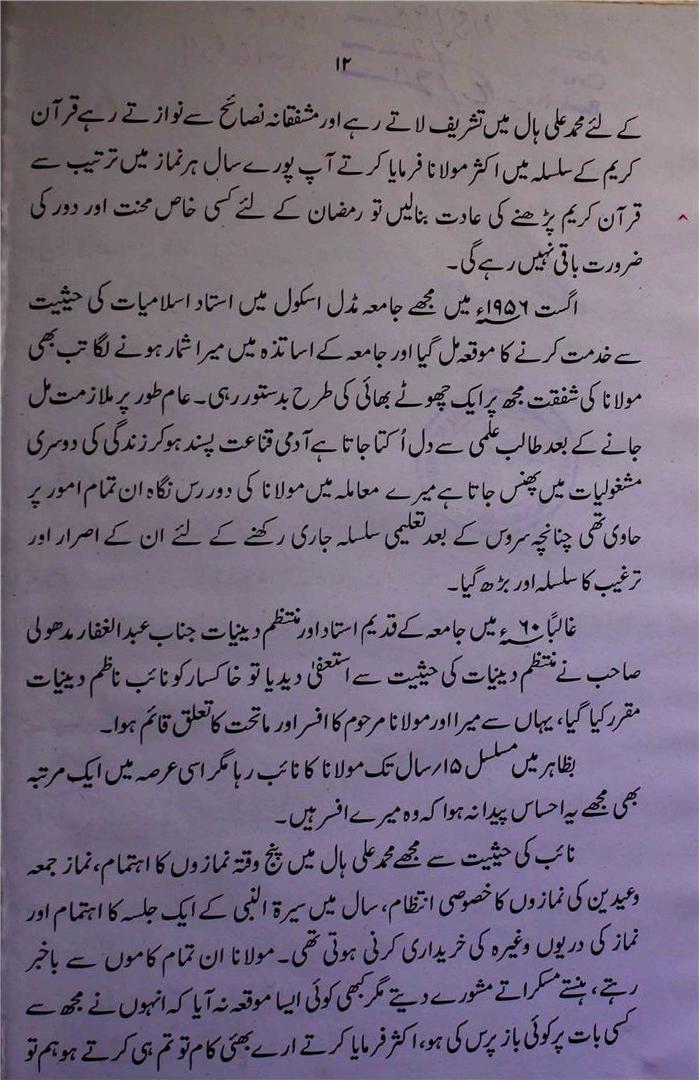 ۱۲
کے لئے محمد علی ہال میں تشریف لاتے رہے اور مشفقانہ نصائح سے نوازتے رہے قرآن
کریم کے سلسلہ میں اکثر مولانا فرمایا کرتے آپ پورے سال ہر نماز میں ترتیب سے
قرآن کریم پڑھنے کی عادت بنالیں تو رمضان کے لئے کسی خاص محنت اور دور کی
ضرورت باقی نہیں رہے گی۔
اگست ۱۹۵۶ء میں مجھے جامعہ مڈل اسکول میں استاد اسلامیات کی حیثیت
سے خدمت کرنے کا موقعہ مل گیا اور جامعہ کے اساتذہ میں میرا شمار ہونے لگا تب بھی
مولانا کی شفقت مجھ پر ایک چھوٹے بھائی کی طرح بدستور رہی۔ عام طور پر ملازمت مل
جانے کے بعد طالب علمی سے دل اُکتا جاتا ہے آدمی قناعت پسند ہوکر زندگی کی دوسری
مشغولیات میں پھنس جاتا ہے میرے معاملہ میں مولانا کی دور رس نگاہ ان تمام امور پر
حاوی تھی چنانچہ سروس کے بعد تعلیمی سلسلہ جاری رکھنے کے لئے ان کے اصرار اور
ترغیب کا سلسلہ اور بڑھ گیا۔
غالباً ۶۰ء میں جامعہ کے قدیم استاد اور منتظم دینیات جناب عبدالغفار مدھولی
صاحب نے منتظم دینیات کی حیثیت سے استعفیٰ دیدیا تو خاکسار کو نائب ناظم دینیات
مقرر کیا گیا، یہاں سے میرا اور مولانا مرحوم کا افسر اور ماتحت کا تعلق قائم ہوا۔
بظاہر میں مسلسل ۱۵؍سال تک مولانا کا نائب رہا مگر اسی عرصہ میں ایک مرتبہ
بھی مجھے یہ احساس پیدا نہ ہوا کہ وہ میرے افسر ہیں۔
نائب کی حیثیت سے مجھے محمد علی ہال میں پنج وقتہ نمازوں کا اہتمام، نماز جمعہ
وعیدین کی نمازوں کا خصوصی انتظام، سال میں سیرۃ النبی کے ایک جلسہ کا اہتمام اور
نماز کی دریوں وغیرہ کی خریداری کرنی ہوتی تھی۔ مولانا ان تمام کاموں سے باخبر
رہتے، ہنستے مسکراتے مشورے دیتے مگر کبھی کوئی ایسا موقعہ نہ آیا کہ انہوں نے مجھ سے
کسی بات پر کوئی باز پرس کی ہو، اکثر فرمایا کرتے ارے بھئی کام تو تم ہی کرتے ہو ہم تو